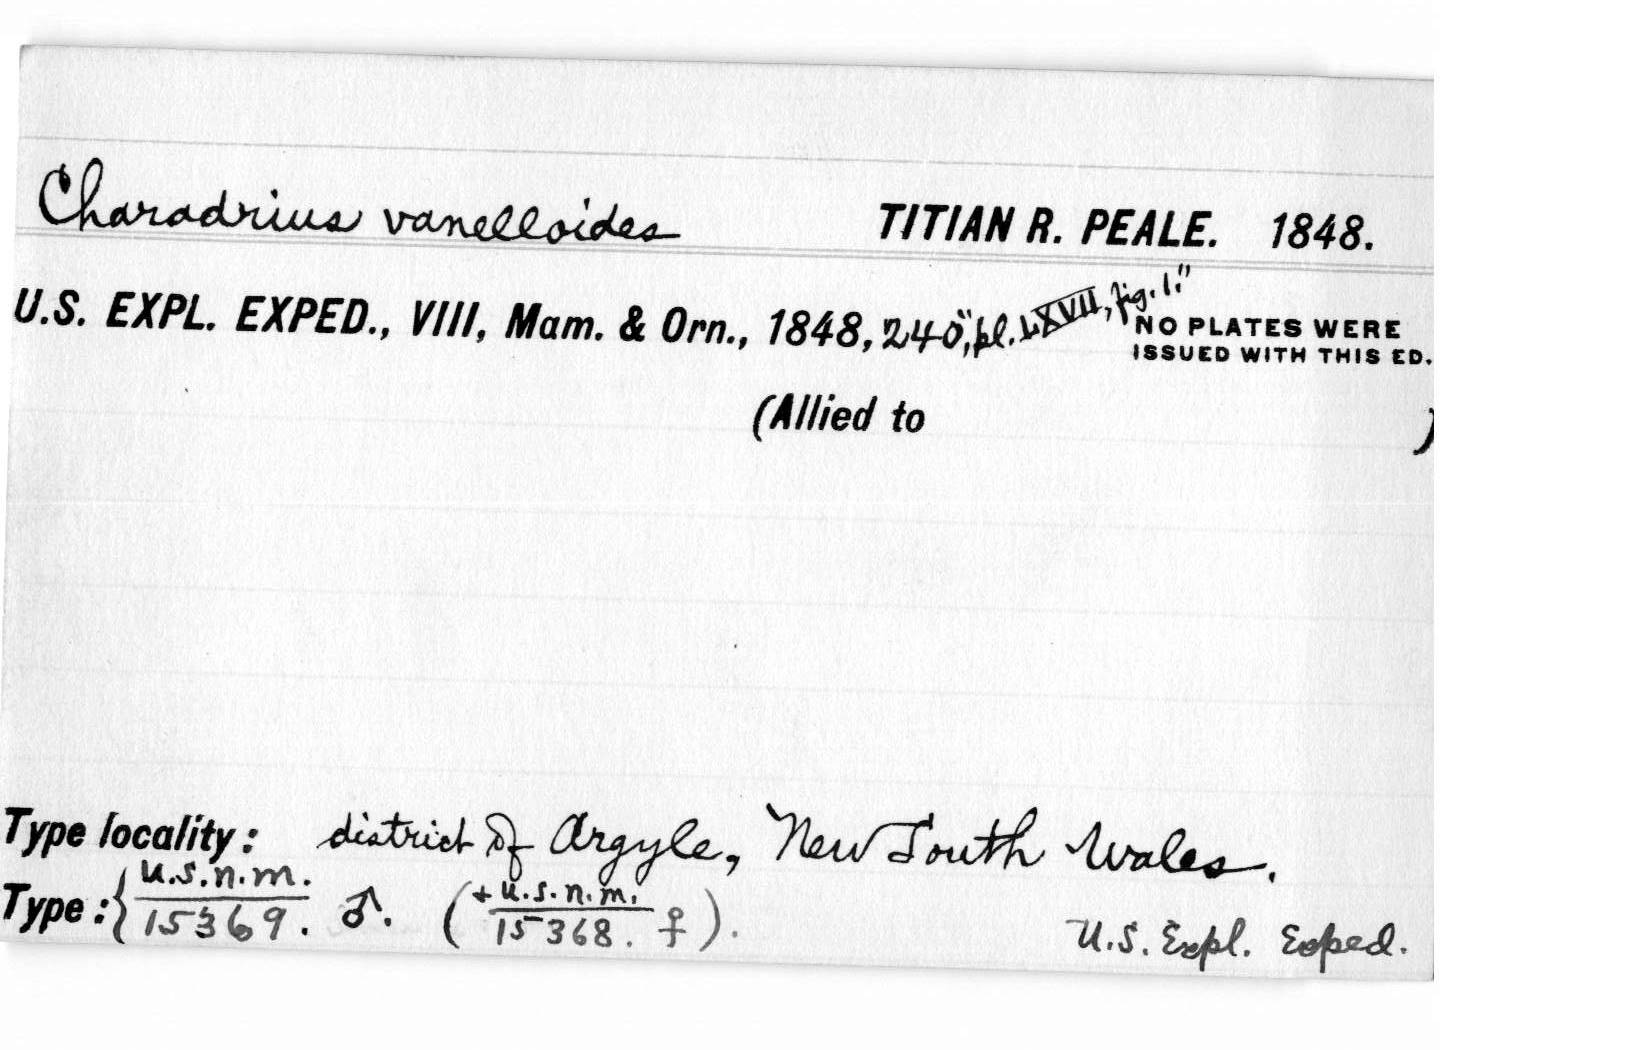 Charadrius vanelloides TITIAN R. PEALE. 1848.
U.S. EXPL. EXPED., VIII, Mam. & Orn., 1848, 240, "pl. LXVII, fig. 1."
NO PLATES WERE
ISSUED WITH THIS ED.
(Allied to )
Type locality: district of Argyle, New South Wales.
Type: { U.S.N.M. / 15369. ♂. (+ U.S.N.M. / 15368. ♀).
U.S. Expl. Exped.